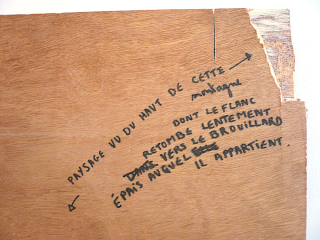 PAYSAGE VU DU HAUT DE CETTE
montagne
DONT LE FLANC
RETOMBE LENTEMENT
DANS VERS LE BROUILLARD
ÉPAIS AUQUEL IL APPARTIENT.